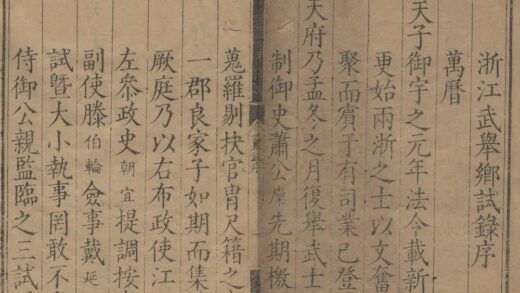 浙江武舉鄉試錄序
萬曆
天子御宇之元年法令載新
更始兩浙之士以文奮
聚而賓于有司業已登
天府乃孟冬之月復舉武士
制御史蕭公廩先期檄
蒐羅剔抉官胄尺籍之
一郡良家子如期而集
厥庭乃以右布政使江
左叅政史朝宜提調按
副使滕伯輪僉事戴延
試暨大小執事罔敢不
侍御公親監臨之三試